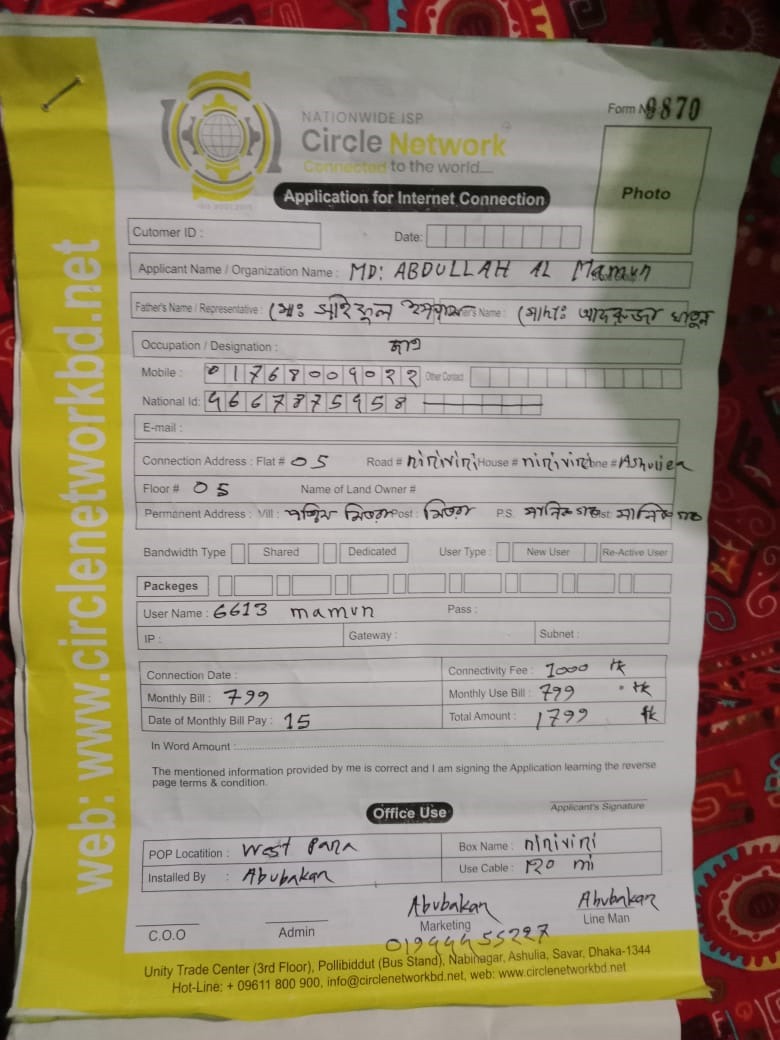 NATIONWIDE ISP
Circle Network
Connected to the world....
Form No 9870
Photo
Application for Internet Connection
Cutomer ID :
Date:
Applicant Name / Organization Name : MD: ABDULLAH AL Mamun
Father's Name / Representative : (মোঃ সাইফুল ইসলাম Name : (মোসাঃ খাতুন
Occupation / Designation :
Mobile : 01768009022 Other Contact
National Id: 4667875958
E-mail :
Connection Address : Flat # 05 Road # ninivini House # ninivini Zone # Ashuliea
Floor # 05 Name of Land Owner #
Permanent Address : Vill : পশ্চিম মিতরা Post : মিতরা P.S. মানিকগঞ্জ Dist: মানিকগঞ্জ
Bandwidth Type Shared Dedicated User Type : New User Re-Active User
Packeges
User Name : 6613 mamun Pass :
IP : Gateway : Subnet :
Connection Date : Connectivity Fee : 1000 tk
Monthly Bill : 799 Monthly Use Bill : 799 tk
Date of Monthly Bill Pay : 15 Total Amount : 1799 tk
In Word Amount :
The mentioned information provided by me is correct and I am signing the Application learning the reverse
page terms & condition.
Applicant's Signature
Office Use
POP Locatition : West Para Box Name : ninivini
Installed By : Abubakan Use Cable : 120 mi
Abubakan Abubakan
C.O.O Admin Marketing Line Man
01944455227
Unity Trade Center (3rd Floor), Pollibiddut (Bus Stand), Nabinagar, Ashulia, Savar, Dhaka-1344
Hot-Line: + 09611 800 900, info@circlenetworkbd.net, web: www.circlenetworkbd.net
web: www.circlenetworkbd.net